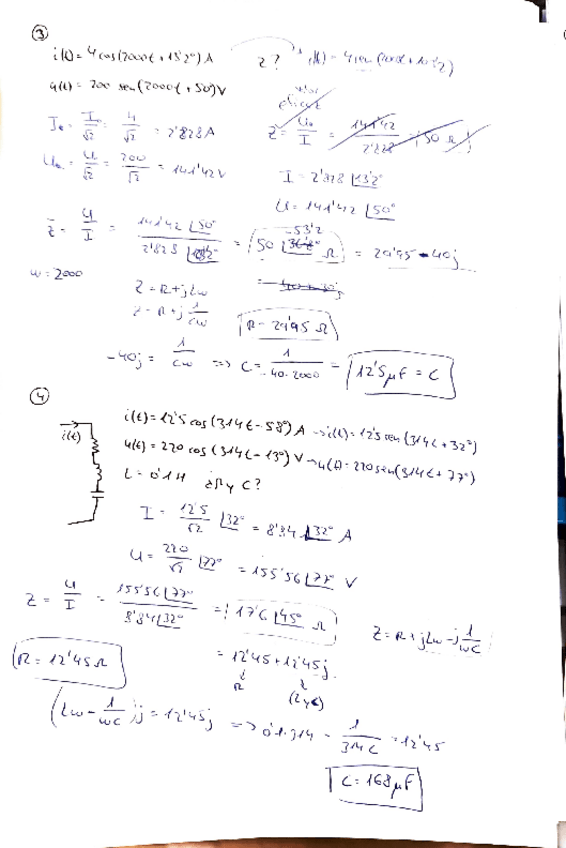 ③
i(t) = 4 cos(2000t + 13'2°) A    Z?
u(t) = 200 sen(2000t + 50°) V
Ie = I₀/√2 = 4/√2 = 2'828 A    Z = U₀/I = 141'42/2'828 = 50 Ω
Ue = U/√2 = 200/√2 = 141'42 V    I = 2'828 |13'2°
U = 141'42 |50°
Z̄ = U/I = 141'42 |50° / 2'828 = 50 |-53'2 Ω = 29'95 - 40j
w = 2000    Z = R + jLw
Z = R + j 1/cw    R = 29'95 Ω
-40j = 1/cw => C = 1/40·2000 = 12'5 μF = C
④
i(t) = 12'5 cos(314t - 58°) A → i(t) = 12'5 sen(314t + 32°)
i(t)    u(t) = 220 cos(314t - 13°) V → u(t) = 220 sen(314t + 77°)
L = 0'1H    ¿R y C?
I = 12'5/√2 |32° = 8'84 |32° A
U = 220/√2 |77° = 155'56 |77° V
Z = U/I = 155'56 |77° / 8'84 |32° = 17'6 |45° Ω    Z = R + jLw - j 1/wC
R = 12'45 Ω    = 12'45 + 12'45j
R
(Lw - 1/wC) j = 12'45j => 0'1·314 - 1/314C = 12'45
C = 168 μF